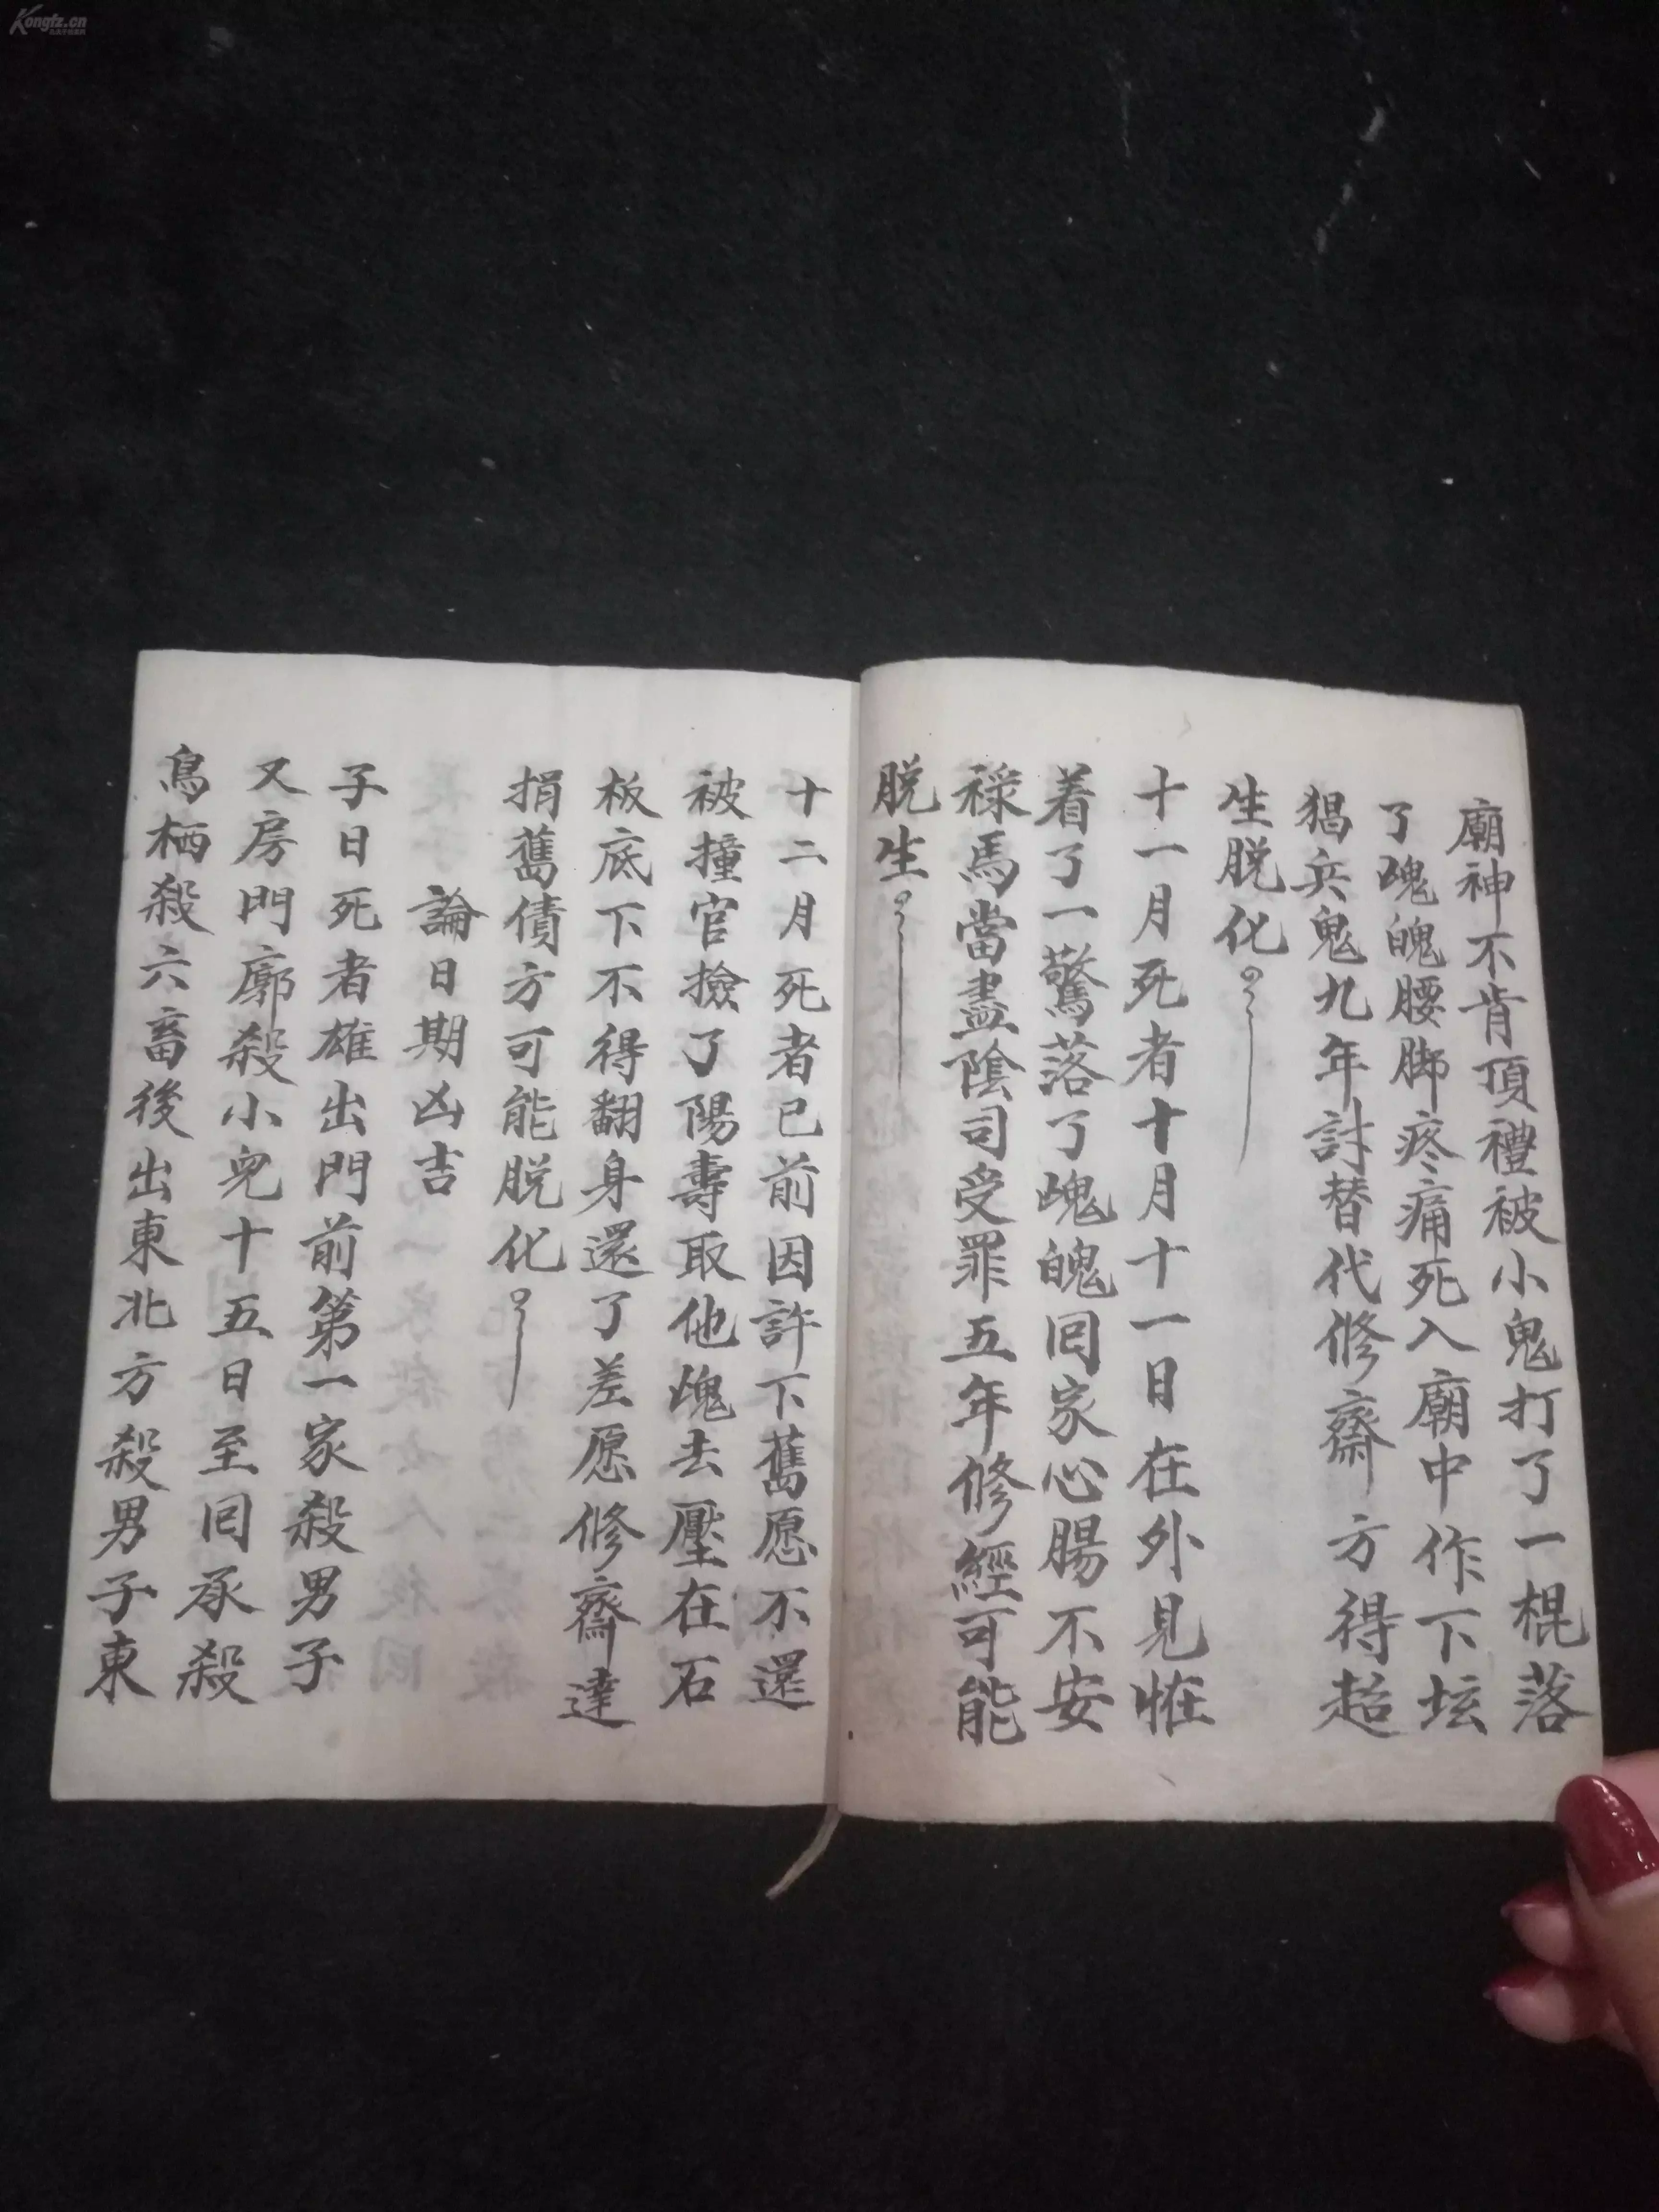 廟神不肯頂禮被小鬼打了一棍落
了魂魄腰脚疼痛死入廟中作下坛
猖兵鬼九年討替代修齋方得超
生脱化
十一月死者十月十一日在外見恠
着了一驚落了魂魄囘家心腸不安
禄馬當盡陰司受罪五年修經可能
脱生
十二月死者已前因許下舊愿不還
被撞官撿了陽壽取他魂去壓在石
板底下不得翻身還了差愿修齋達
捐舊債方可能脱化
論日期凶吉
子日死者雄出門前第一家殺男子
又房門廓殺小兒十五日至囘承殺
鳥栖殺六畜後出東北方殺男子東
Kongfz.cn